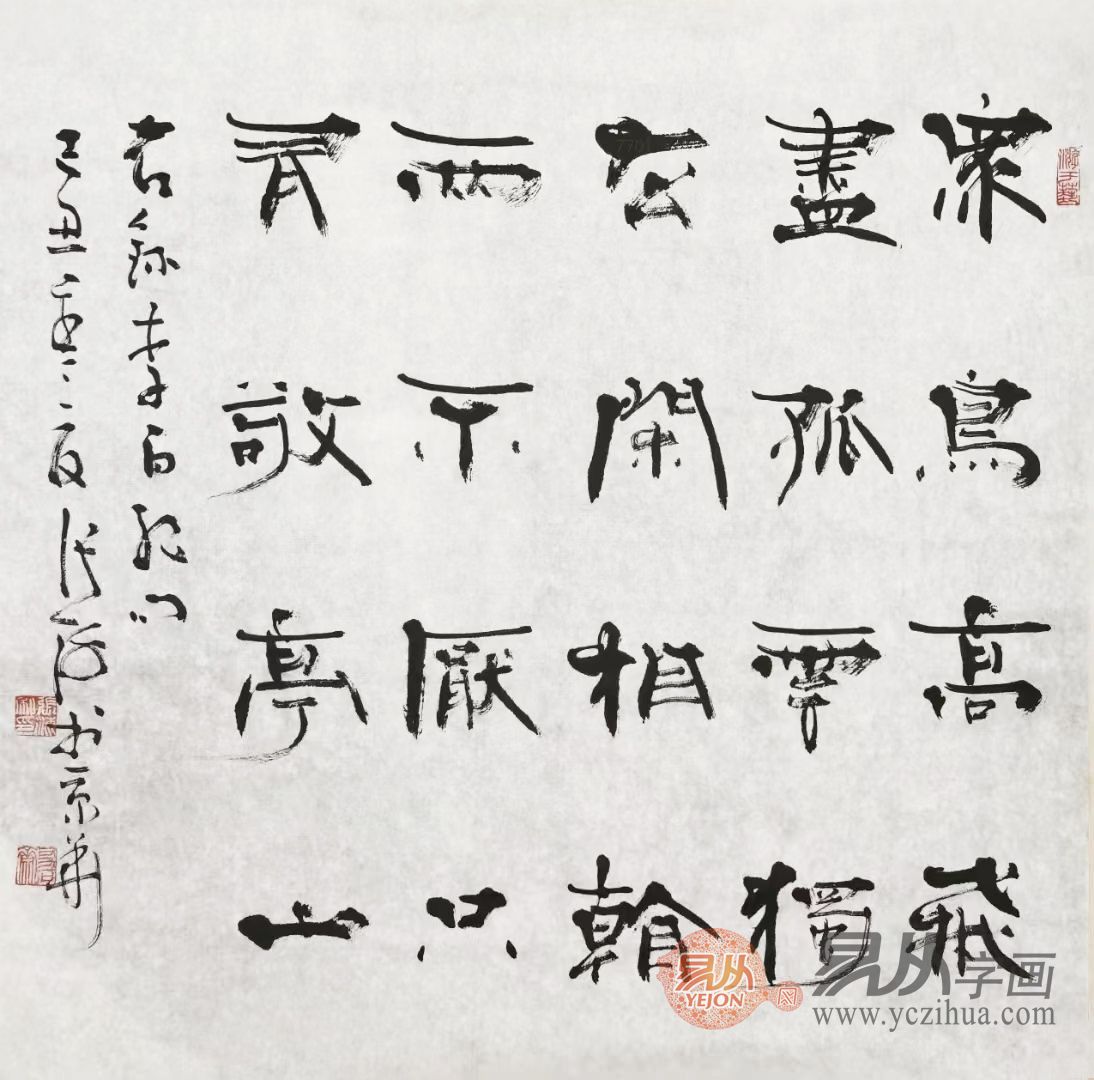 眾鳥高飛
盡孤雲獨
去閑相看
兩不厭只
有敬亭山
右錄李白
己丑 書京華
易从
YEJON
易从字画
www.yczihua.com